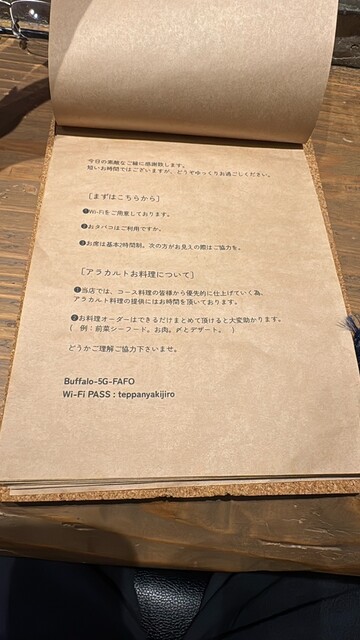 今日の素敵なご縁に感謝致します。
短いお時間ではございますが、どうぞゆっくりお過ごしください。
［まずはこちらから］
❶Wi-Fiをご用意しております。
❷おタバコはご利用ですか。
❸お席は基本2時間制。次の方がお見えの際はご協力を。
［アラカルトお料理について］
❶当店では、コース料理の皆様から優先的に仕上げていく為、
アラカルト料理の提供にはお時間を頂いております。
❷お料理オーダーはできるだけまとめて頂けると大変助かります。
( 例：前菜シーフード。お肉。〆とデザート。 )
どうかご理解ご協力下さいませ。
Buffalo-5G-FAFO
Wi-Fi PASS : teppanyakijiro